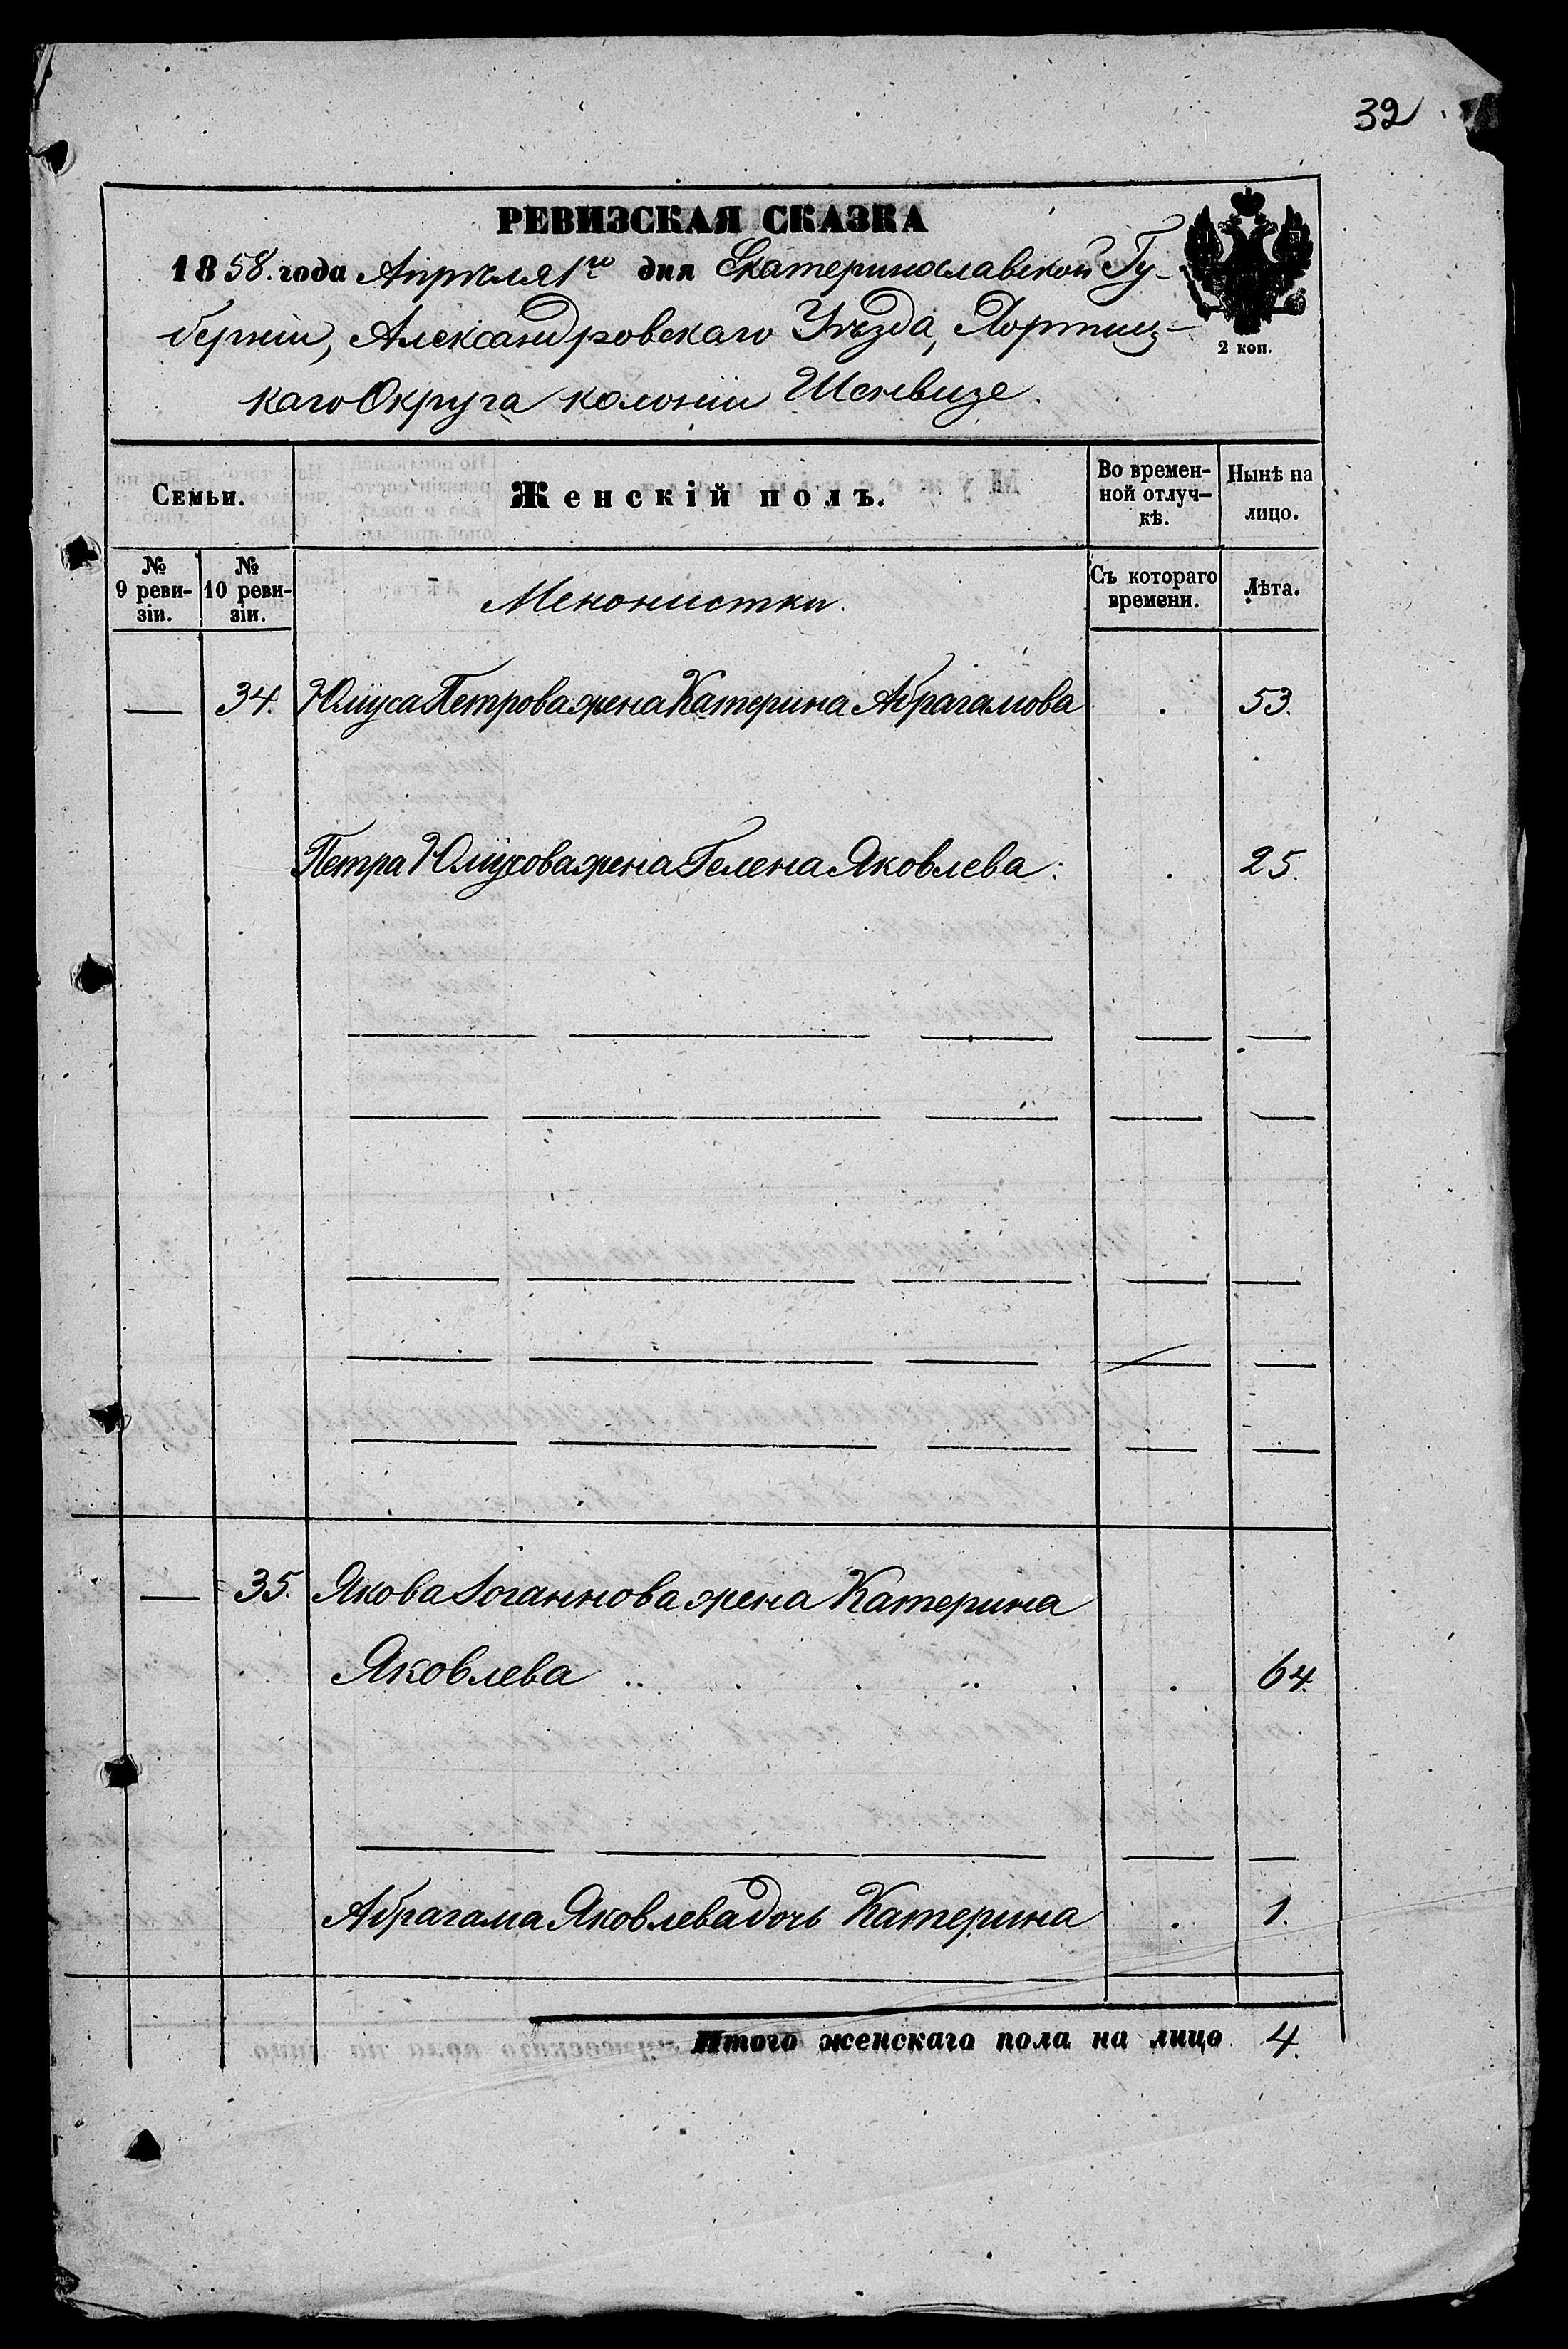 32
РЕВИЗСКАЯ СКАЗКА
1858. года Апрѣля 1го дня Екатеринославской Гу-
берніи, Александровскаго Уѣзда, Хортиц-
каго Округа колоніи Шенвизе.
2 коп.
Семьи. Женскій полъ. Во времен-ной отлуч-кѣ. Нынѣ на лицо.
№ 9 реви-зіи. № 10 реви-зіи. Менонистки. Съ котораго времени. Лѣта.
— 34. Юліуса Петрова жена Катерина Абрагамова . 53.
Петра Юліусова жена Гелена Яковлева . 25.
— 35. Якова Іоганнова жена Катерина
Яковлева . 64.
Абрагама Яковлева дочь Катерина . 1.
Итого женскаго пола на лицо 4.